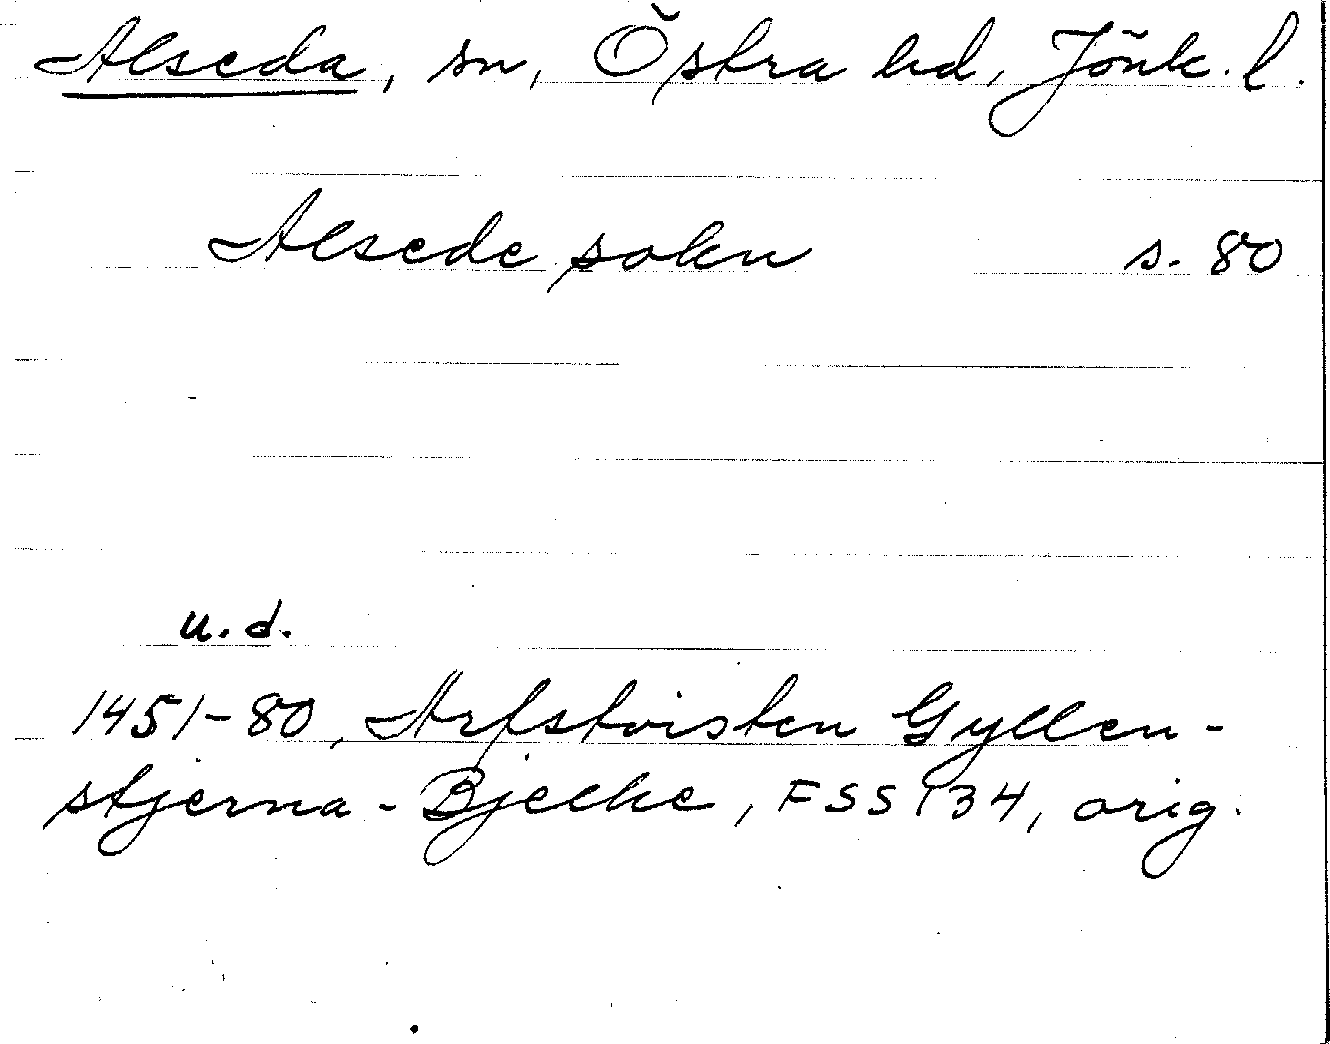 Alseda, sn, Östra hd, Jönk. l.
Alsede sokn s. 80
u. d.
1451-80, Arfstvisten Gyllen-
stjerna - Bjelke, FSS 134, orig.